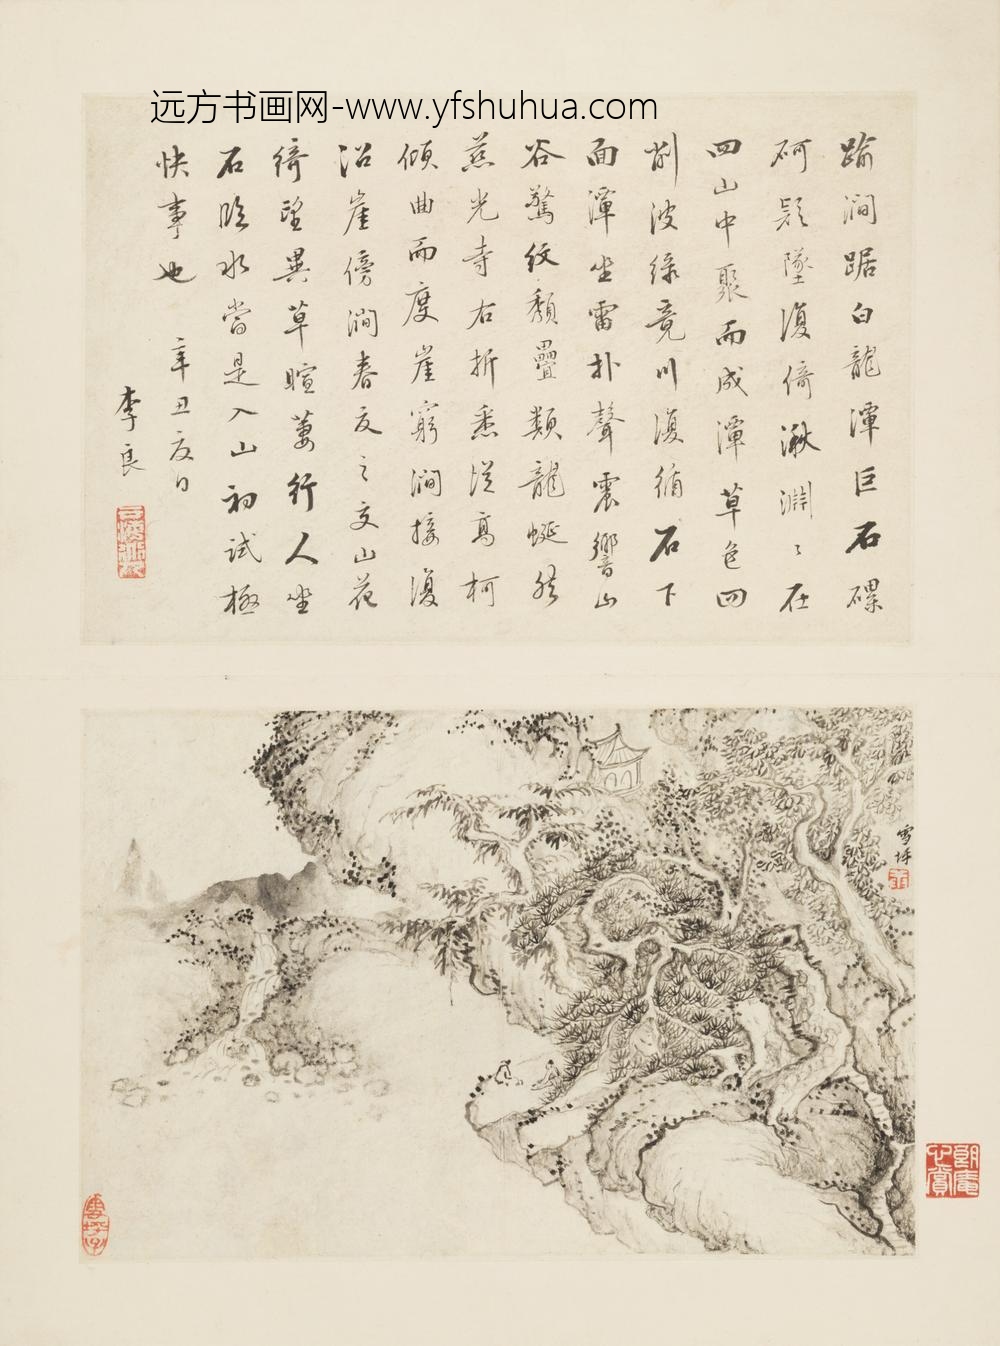 远方书画网-www.yfshuhua.com
踰澗踞白龍潭巨石磥
砢影墜復倚湫淵〻在
四山中聚而成潭草色四
削波綠竟川復循石下
面潭坐雷扑聲震響山
谷驚紋頽疊類龍蜒然
燕光寺右折悉從高柯
傾曲而度崖窮澗接復
沿崖傍澗春夏之交山花
綺望異草暄萋行人坐
石臨水當是入山初試極
快事也 辛丑夏日
李良
雪坪